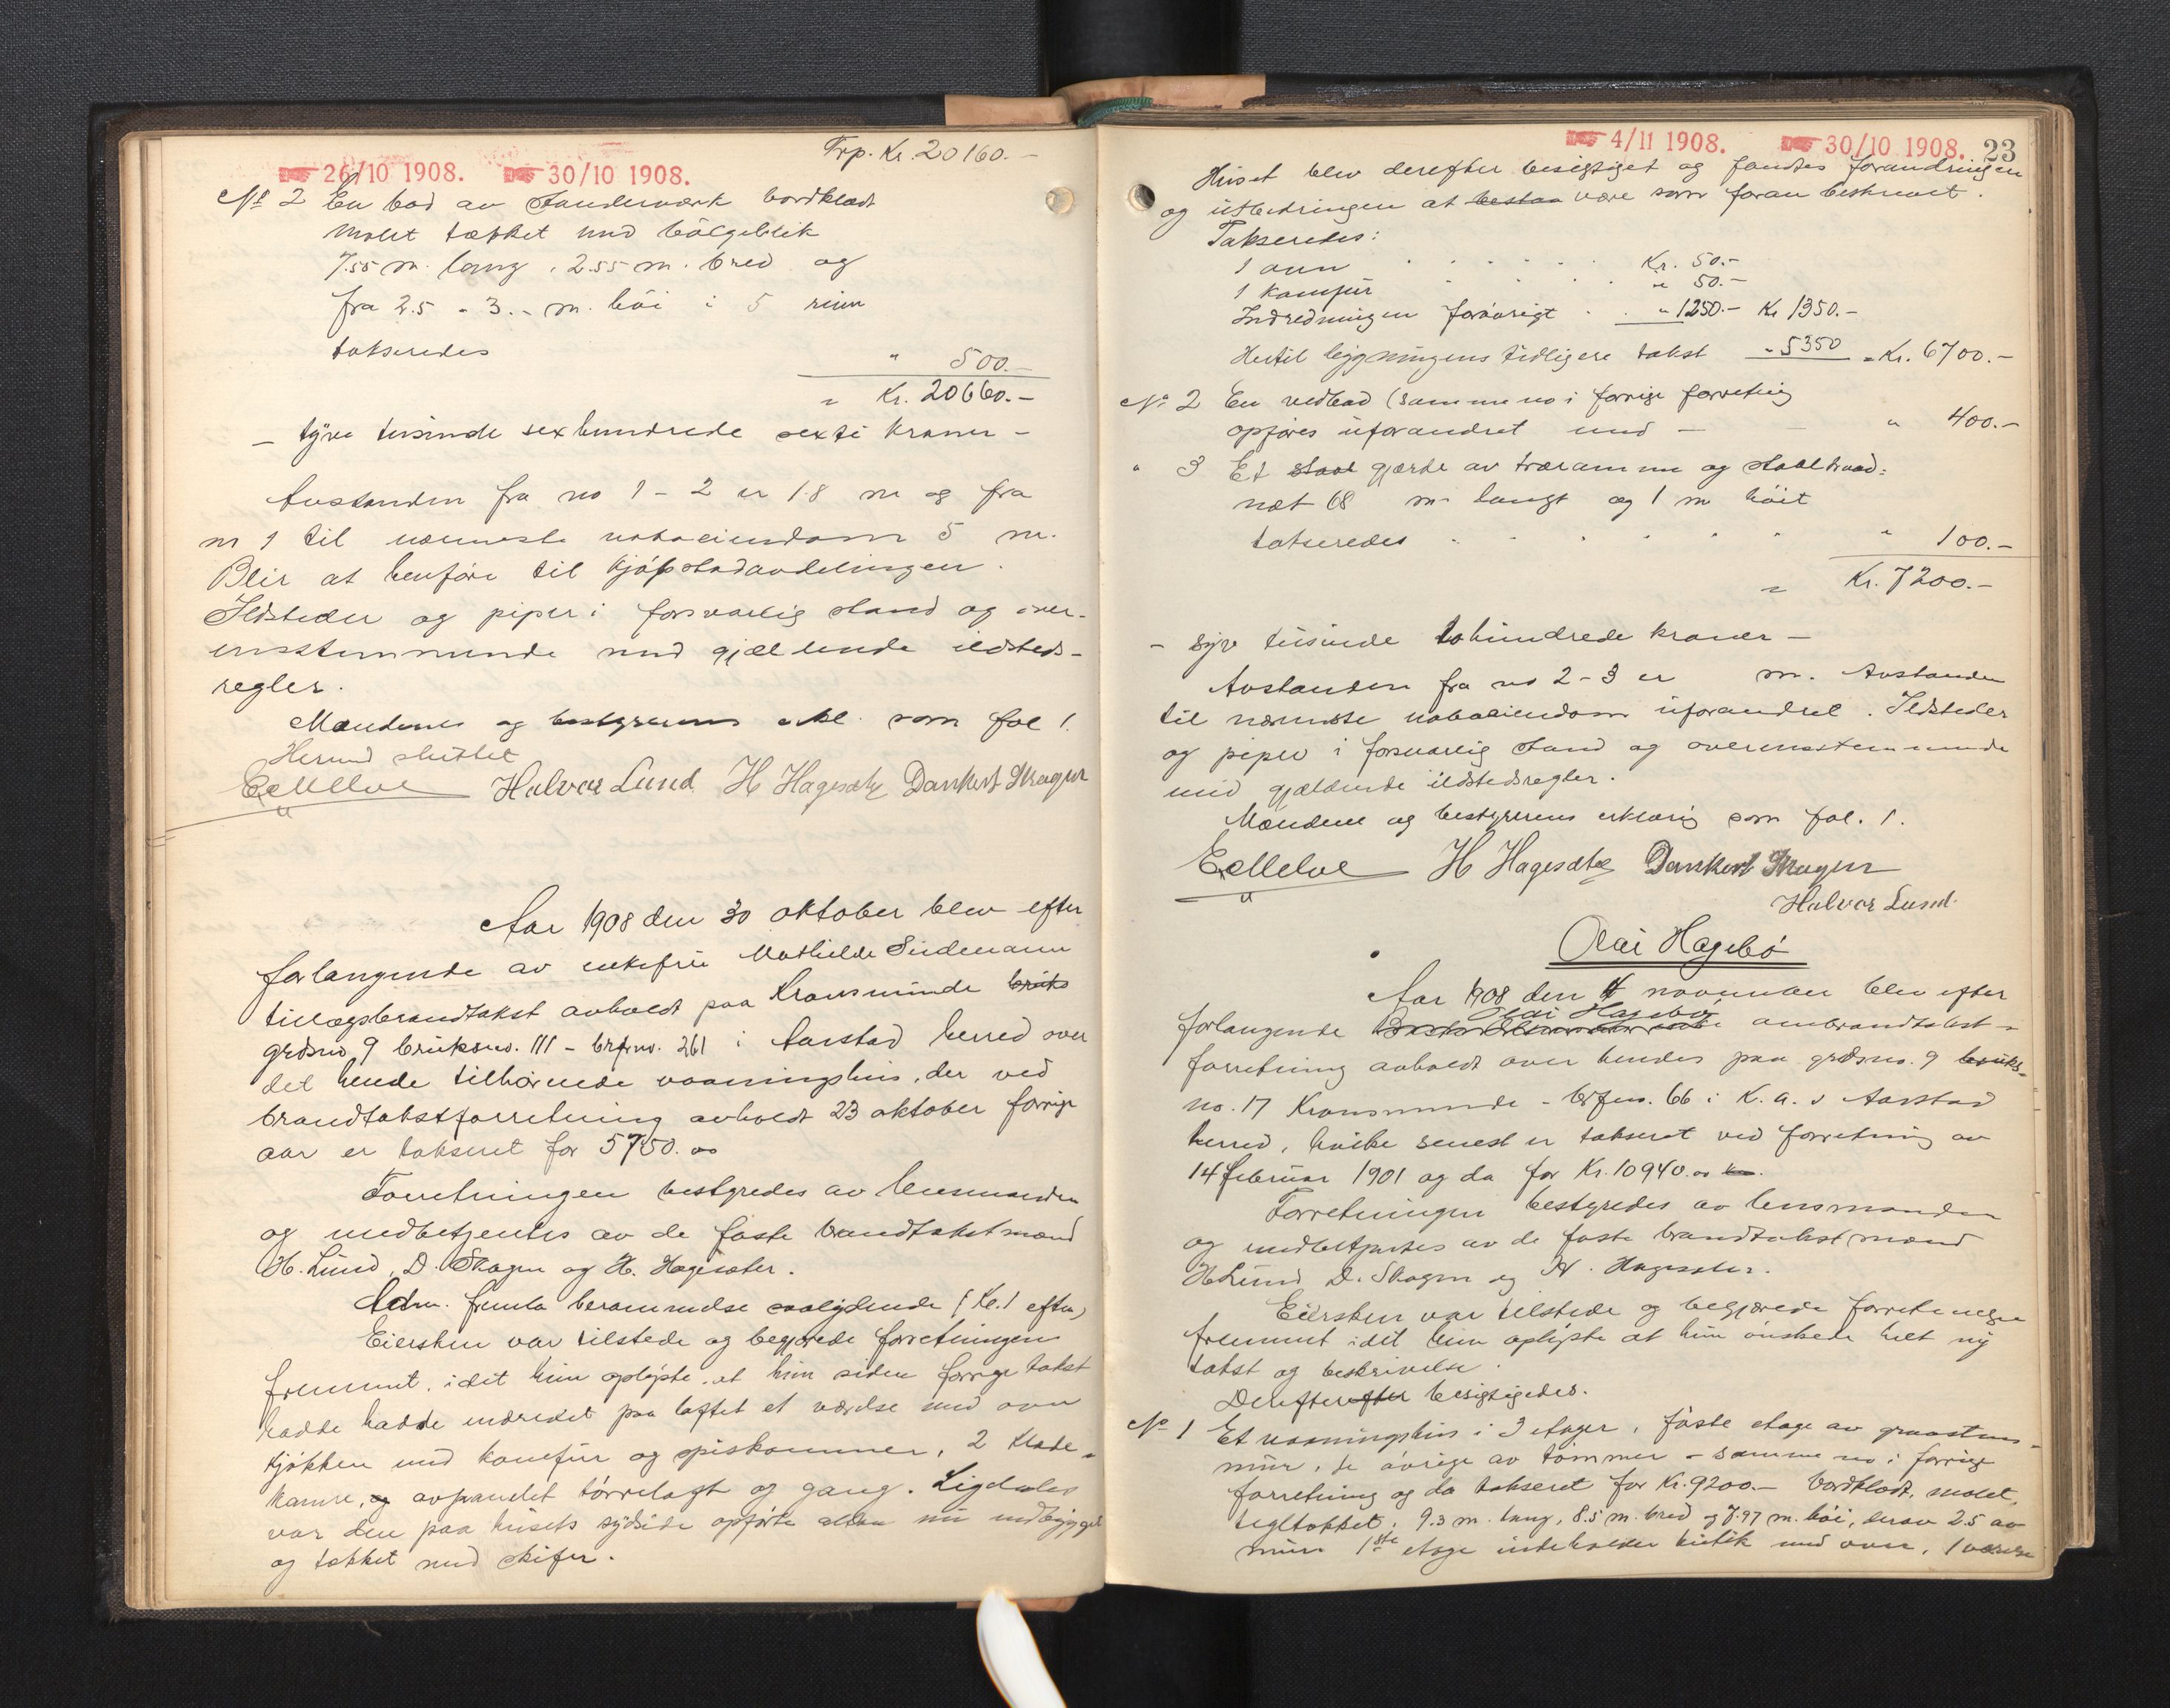 Trp. Kr. 20160.-
26/10 1908. 30/10 1908.
No 2 En bod av standerværk bordklædt
malet tækket med bölgeblik
7.55 m. lang, 2.55 m. bred og
fra 2.5 - 3.- m. höi i 5 rum
takseredes
" 500.-
= Kr. 20660.-
- tyve tusinde sexhundrede sexti kroner -
Avstanden fra no 1 - 2 er 1.8 m og fra
no 1 til nærmeste naboeiendom 5 m.
Blir at henföre til kjöpstadavdelingen.
Ildsteder og piper i forsvarlig stand og over-
ensstemmende med gjældende ildsteds-
regler.
Mændenes og bestyrerens erkl. som fol 1.
Hermed sluttet
E. Melve Halvor Lund H Hagesæter Dankert Skagen
Aar 1908 den 30 oktober blev efter
forlangende av enkefru Mathilde Lindemann
tillægsbrandtakst avholdt paa Kronsminde bruks
grdsno 9 bruksno. 111 - brfno. 261 i Aarstad herred over
det hende tilhörende vaaningshus, der ved
brandtakstforretning avholdt 23 oktober forrige
aar er takseret for 5750.00
Forretningen bestyredes av lensmanden
og medbetjentes av de faste brandtakstmænd
H. Lund, D. Skagen og H. Hagesæter.
Adm. fremla berammelse saalydende (Kl. 1 efterm)
Eiersken var tilstede og begjærede forretningen
fremmet, idet hun oplyste, at hun siden forrige takst
hadde hadde indredet paa loftet et værelse med ovn
kjökken med komfur og spiskammer, 2 klæde-
kamre, og avpanelet törreloft og gang. Ligeledes
var den paa husets sydside opförte altan nu indbygget
og tækket med skifer.
4/11 1908. 30/10 1908. 23
Huset blev derefter besigtiget og fandtes forandringen
og utbedringen at bestaa være som foran beskrevet.
Takseredes:
1 ovn Kr. 50.-
1 komfur " 50.-
Indredningen forövrigt " 1250.- Kr 1350.-
Hertil bygningens tidligere takst " 5350 = Kr. 6700.-
No 2 En vedbod (samme no i forrige forretning
opföres uforandret med - " 400.-
" 3 Et staal gjærde av træramme og staaltraad-
næt 68 m. langt og 1 m höit
takseredes " 100.-
= Kr. 7200.-
- syv tusinde tohundrede kroner -
Avstanden fra no 2 - 3 er m. Avstanden
til nærmeste naboeiendom uforandret. Ildsteder
og piper i forsvarlig stand og overensstemmende
med gjældende ildstedsregler.
Mændene og bestyrerens erklæring som fol. 1.
E. Melve H Hagesæter Dankert Skagen
Halvor Lund.
Olai Hagebö
Aar 1908 den 4 november blev efter
Olai Hagebö
forlangende ombrandtakst-
forretning avholdt over hendes paa grdsno. 9 bruks-
no. 17 Kronsminde - brfno. 66 i K. a. i Aarstad
herred, hvilke senest er takseret ved forretning av
14 februar 1901 og da for Kr. 10940.00
Forretningen bestyredes av lensmanden
og medbetjentes av de faste brandtakstmænd
H Lund D. Skagen og H. Hagesæter.
Eiersken var tilstede og begjærede forretningen
fremmet idet hun oplyste at hun önskede helt ny
takst og beskrivelse.
Derefterefter besigtigedes.
No 1 Et vaaningshus i 3 etager, förste etage av graastens-
mur, de övrige av tömmer - samme no i forrige
forretning og da takseret for Kr. 9200.- Bordklædt, malet,
tegltækket. 9.3 m. lang, 8.5 m. bred og 7.97 m. höi, derav 2.5 av
mur 1ste etage indeholder butik med ovn, 1 værelse